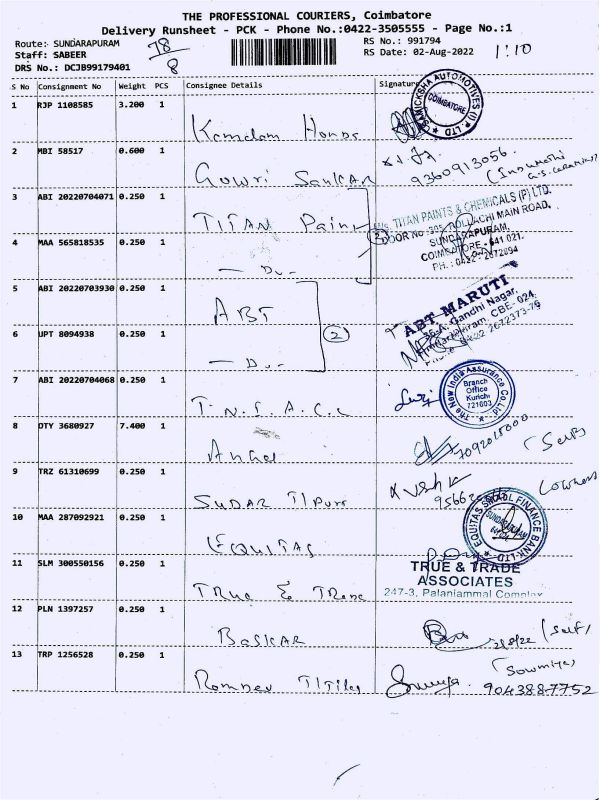 THE PROFESSIONAL COURIERS, Coimbatore
Delivery Runsheet - PCK - Phone No.:0422-3505555 - Page No.:1
Route: SUNDARAPURAM
RS No.: 991794
Staff: SABEER
RS Date: 02-Aug-2022
1:10
DRS No.: DCJB99179401
78
8
S No Consignment No Weight PCS Consignee Details Signature
1 RJP 1108585 3.200 1
SAMICKSHA AUTOMOTIVES (I) LTD
COIMBATORE
2 MBI 58517 0.600 1
Gowri Sankar
9360913056
3 ABI 20220704071 0.250 1
TITAN Paint
M/s. TITAN PAINTS & CHEMICALS (P) LTD.
DOOR No :305, POLLACHI MAIN ROAD,
SUNDARAPURAM,
COIMBATORE - 641 021.
PH.: 0422 - 2672894
4 MAA 565818535 0.250 1
- Do -
5 ABI 20220703930 0.250 1
ABT
ABT MARUTI
Gandhi Nagar,
CBE- 024.
2672373-76
6 UPT 8094938 0.250 1
- Do -
2
7 ABI 20220704068 0.250 1
T.N.I.A.C.L
The New India Assurance Co. Ltd.
Branch
Office
Kurichi
721603
8 DTY 3680927 7.400 1
7092015000
(Self)
9 TRZ 61310699 0.250 1
10 MAA 287092921 0.250 1
EQUITAS
EQUITAS SMALL FINANCE BANK LTD
SUNDARAPURAM
11 SLM 300550156 0.250 1
True & Trade
TRUE & TRADE
ASSOCIATES
247-3, Palaniammal Complex
12 PLN 1397257 0.250 1
BASKAR
2/8/22 (Self)
13 TRP 1256528 0.250 1
(Sowmiya)
9043887752